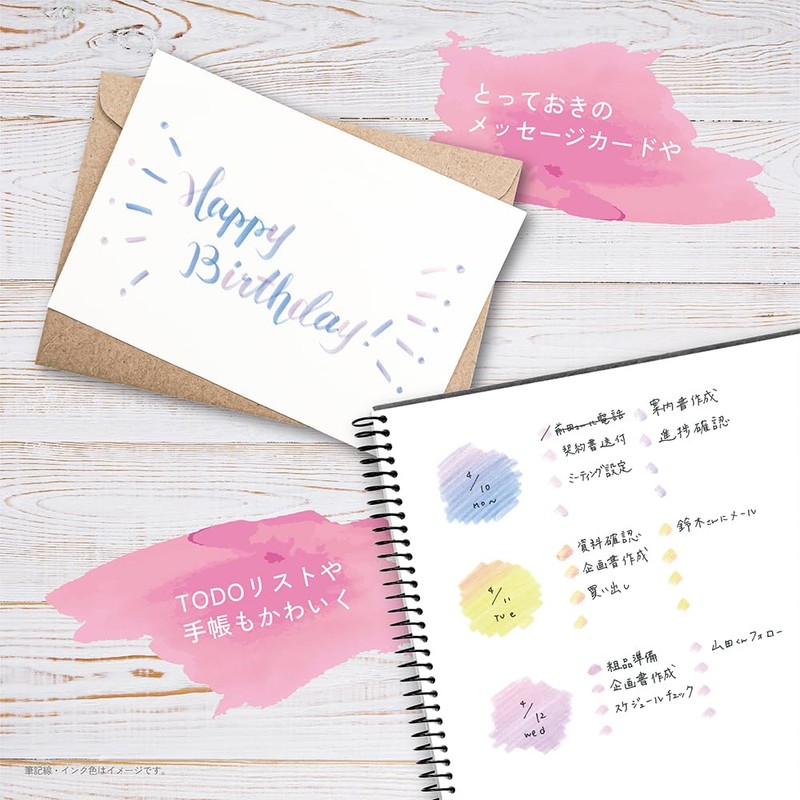 とっておきの
メッセージカードや
Happy
Birthday!
前田さん電話
案内書作成
契約書送付
進捗確認
ミーティング設定
4/10
mon
資料確認
鈴木さんにメール
企画書作成
買い出し
4/11
Tue
粗品準備
山田くんフォロー
企画書作成
スケジュールチェック
4/12
wed
TODOリストや
手帳もかわいく
筆記線・インク色はイメージです。